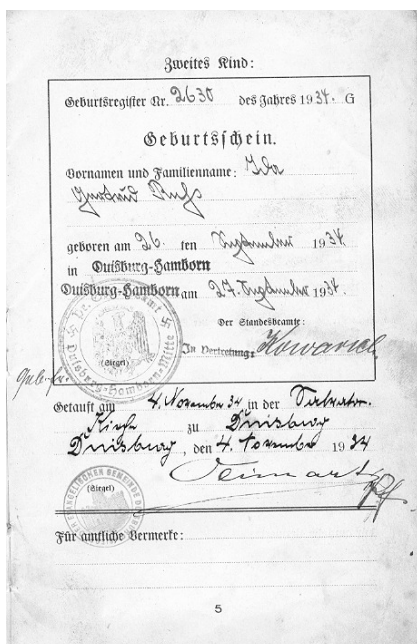 Zweites Kind:
Geburtsregister Nr. 2630 des Jahres 1934. G
Geburtsschein.
Vornamen und Familienname: Ida
Gertrud
geboren am 26. ten September 1934
in Duisburg-Hamborn
Duisburg-Hamborn am 27. September 1934.
Der Standesbeamte:
(Siegel) In Vertretung:
Duisburg-Hamborn-Mitte
Getauft am 4. November 34 in der Salvator-
Kirche zu Duisburg
Duisburg, den 4. November 1934
(Siegel)
Für amtliche Vermerke:
5